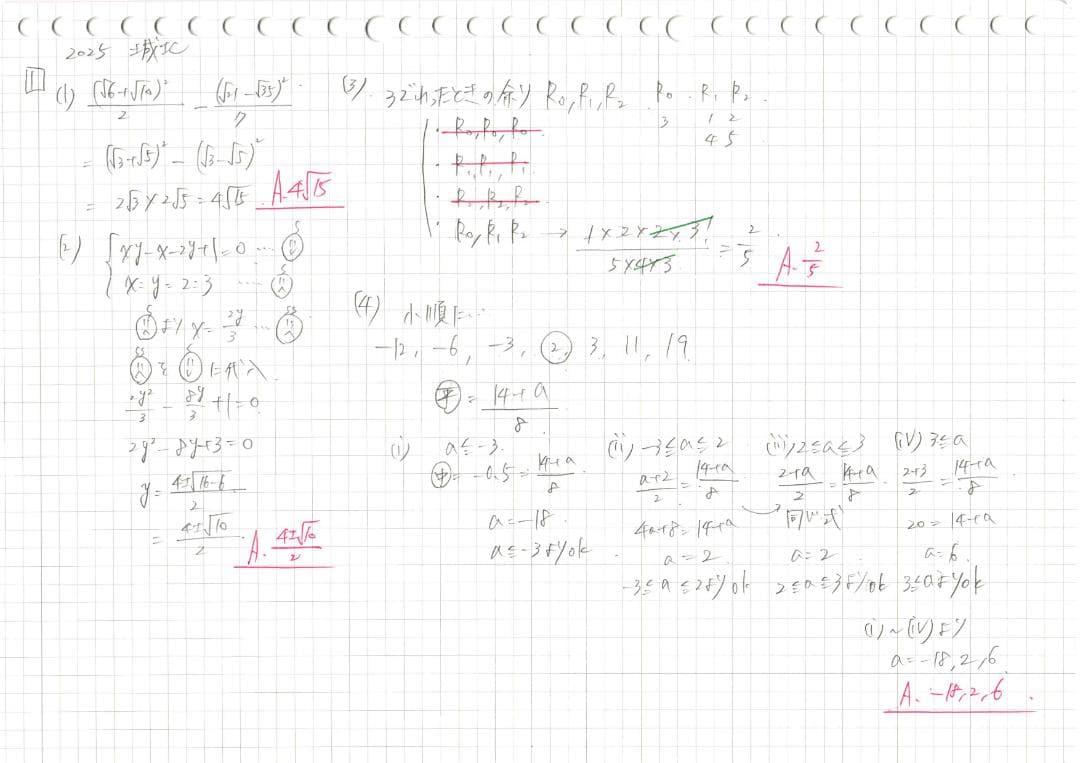 2025 城北
1
(1) (√6+√10)²/2 - (√21-√35)²/7
= (√3+√5)² - (√3-√5)²
= 2√3×2√5=4√15 A.4√15
(2) xy-x-2y+1=0 …
x:y=2:3 …
より x=2y/3 …
を に代入
2y²/3 - 8y/3 +1=0
2y²-8y+3=0
y=4±√16-6/2
=4±√10/2 A.4±√10/2
(3). 3でわったときの余り R₀,R₁,R₂ R₀ R₁ R₂
3 1 2
4 5
・R₀,R₀,R₀
・R₁,R₁,R₁
・R₂,R₂,R₂
・R₀,R₁,R₂ → 1×2×2×3!/5×4×3 = 2/5 A.2/5
(4) 小順に…
-12, -6, -3, 2, 3, 11, 19
平=14+a/8
(i) a≦-3
中=-0.5=14+a/8
a=-18
a≦-3よりok
(ii) -3≦a≦2
a+2/2=14+a/8
4a+8=14+a
a=2
-3≦a≦2よりok
(iii) 2≦a≦3
2+a/2=14+a/8
同い式
a=2
2≦a≦3よりok
(iv) 3≦a
2+3/2=14+a/8
20=14+a
a=6
3≦aよりok
(i)~(iv)より
a=-18,2,6
A.-18,2,6